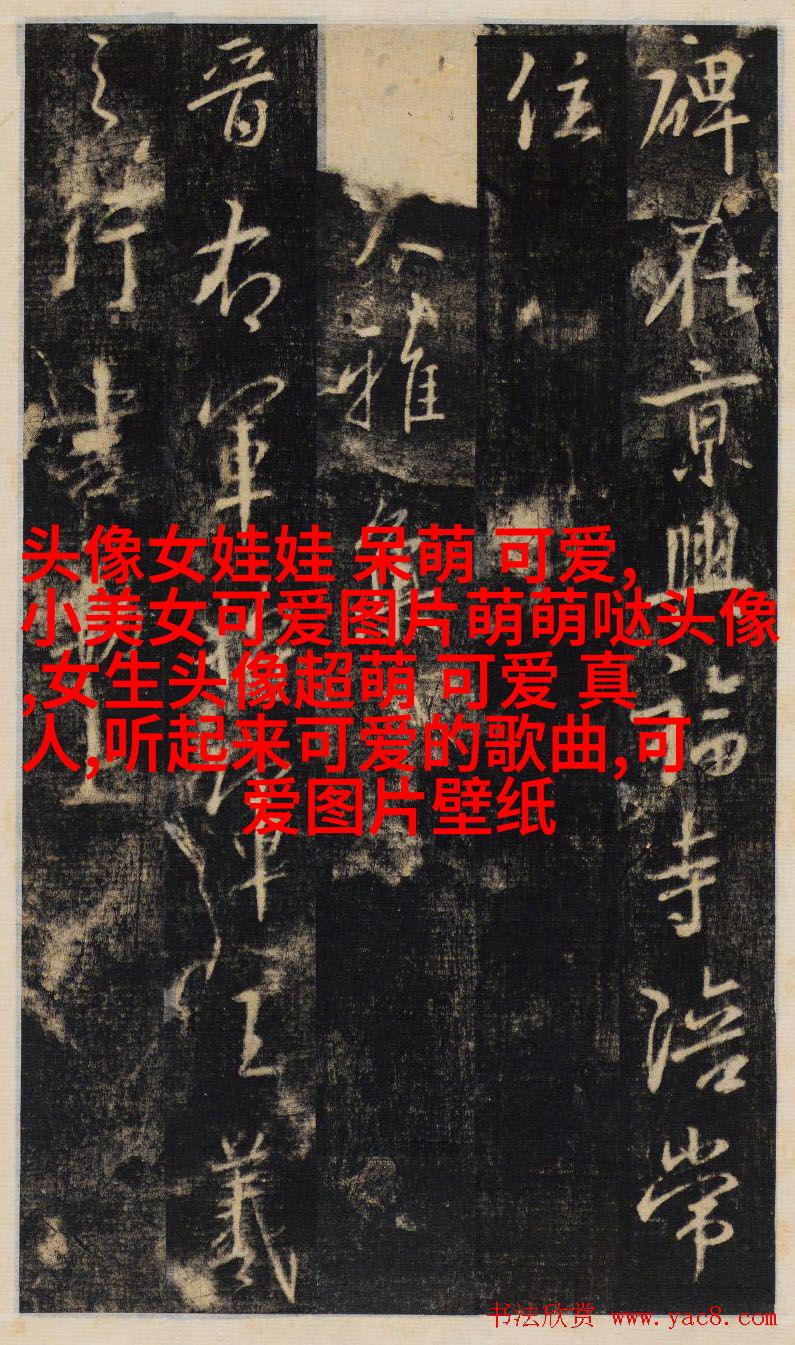 碑在京興福寺陪常
住
大雅集
晉右軍將軍王羲
之行書勒上
头像女娃娃 呆萌 可爱,
小美女可爱图片萌萌哒头像
,女生头像超萌 可爱 真
人,听起来可爱的歌曲,可
爱图片壁纸
书法欣赏 www.yac8.com